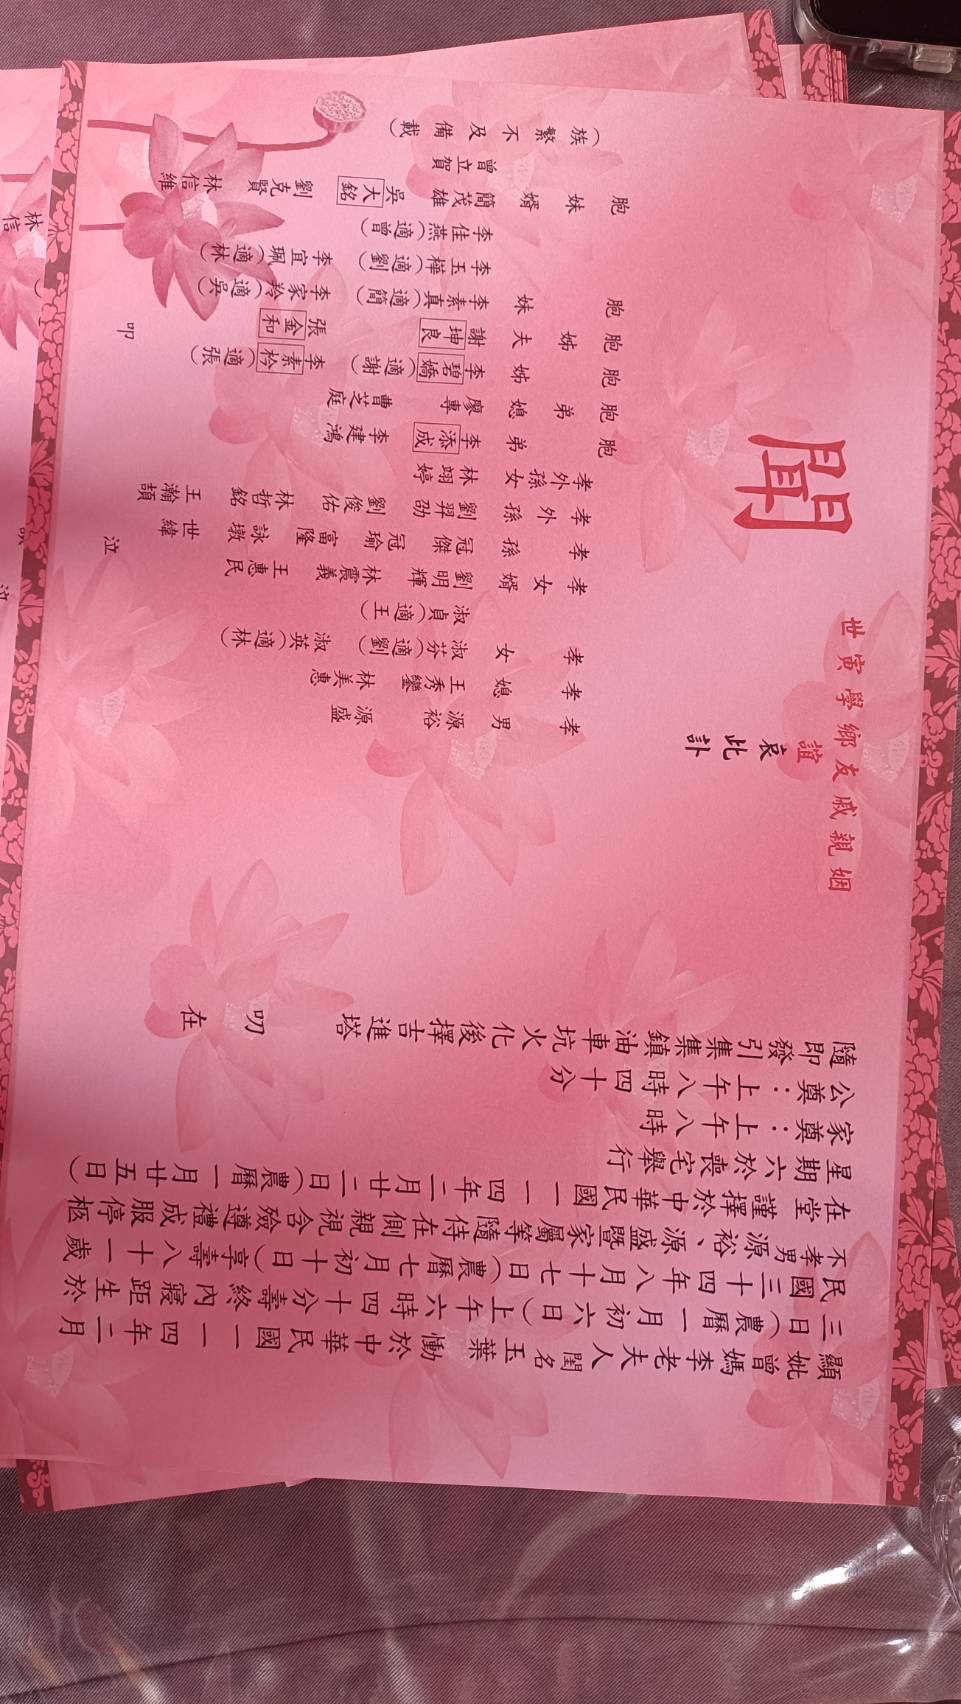 顯妣曾媽李老夫人閨名玉葉 慟於中華民國一一四年二月
三日(農曆一月初六日)上午六時四十分壽終內寢距生於
民國三十四年八月十七日(農曆七月初十日)享壽八十一歲
不孝男源裕、源盛暨家屬等隨侍在側親視含殮遵禮成服停柩
在堂謹擇於中華民國一一四年二月廿二日(農曆一月廿五日)
星期六於喪宅舉行
家奠：上午八時
公奠：上午八時四十分
隨即發引集集鎮油車坑火化後擇吉進塔
叨在
姻親戚友鄉學寅世
誼
哀此訃
聞
孝男 源裕 源盛
孝媳 王秀鑾 林美惠
孝女 淑芬(適劉) 淑英(適林)
淑貞(適王)
孝女婿 劉明輝 林震義 王惠民
孝孫 冠傑 冠瑜 富隆 詠墩 世緯
孝外孫 劉羿劭 劉俊佑 林哲銘 王瀚頡
孝外孫女 林翊婷
泣
胞弟 李添成 李建鴻
胞弟媳 廖專 曹芝庭
胞姊 李碧嬌(適謝) 李素柃(適張)
胞姊夫 謝坤良 張金和
胞妹 李素真(適簡) 李家羚(適吳)
李玉樺(適劉) 李宜珮(適林)
李佳燕(適曾)
胞妹婿 簡茂雄 吳大銘 劉克賢 林信維
曾立賀
叩
(族繁不及備載)
林信